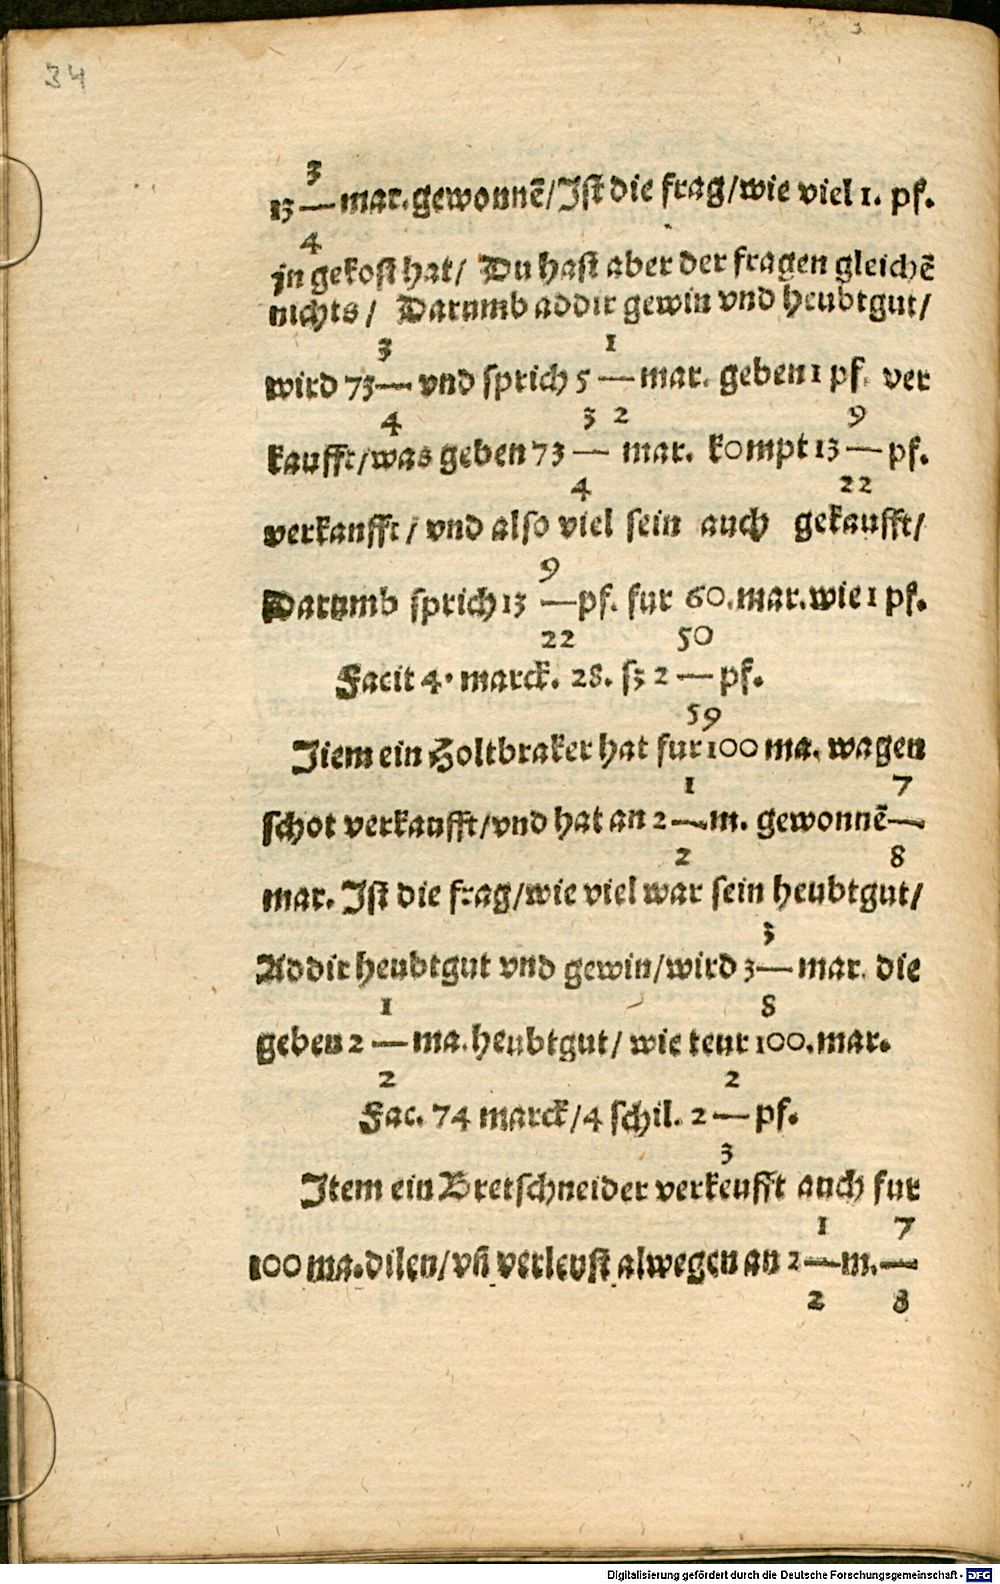 34
13 3/4 mar. gewonnē/Jst die frag/wie viel 1. pf.
jn gekost hat/ Du hast aber der fragen gleichē
nichts/ Darumb addir gewin vnd heubtgut/
wird 73 3/4 vnd sprich 5 1/2 mar. geben 1 pf. ver
kaufft/was geben 73 3/4 mar. kompt 13 9/22 pf.
verkaufft/ vnd also viel sein auch gekaufft/
Darumb sprich 13 9/22 pf. fur 60. mar. wie 1 pf.
Facit 4. marck. 28. ß 2 50/59 pf.
Jtem ein Holtbraker hat fur 100 ma. wagen
schot verkaufft/vnd hat an 2 1/2 m. gewonnē 7/8
mar. Jst die frag/wie viel war sein heubtgut/
Addir heubtgut vnd gewin/wird 3 3/8 mar. die
geben 2 1/2 ma. heubtgut/ wie teur 100. mar.
Fac. 74 marck/4 schil. 2 2/3 pf.
Jtem ein Bretschneider verkeufft auch fur
100 ma. dilen/vñ verleust alwegen an 2 1/2 m. 7/8
Digitalisierung gefördert durch die Deutsche Forschungsgemeinschaft - DFG